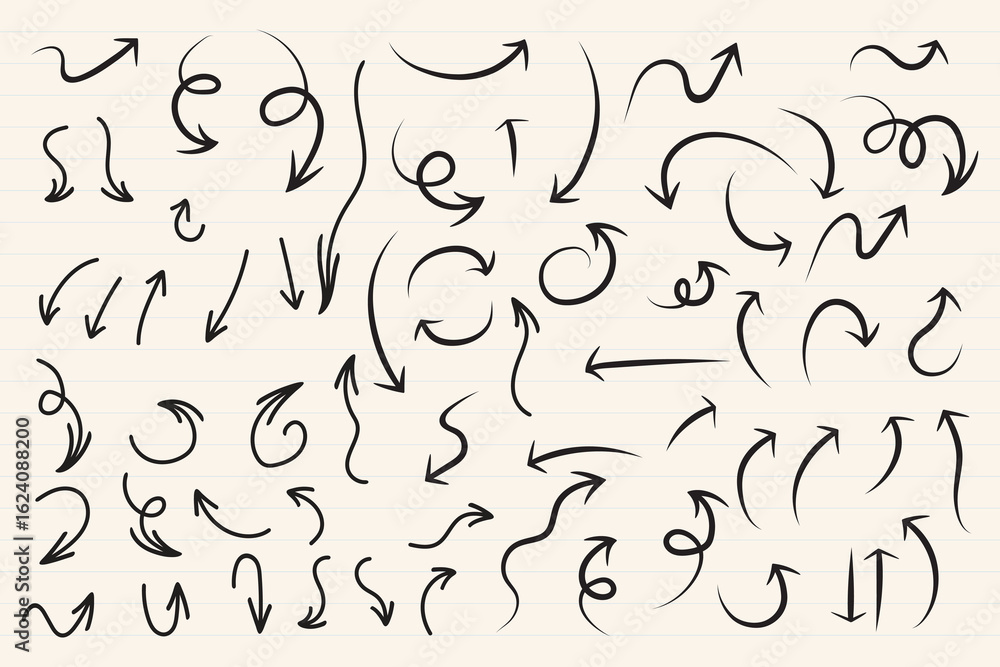 Adobe Stock | #1624088200